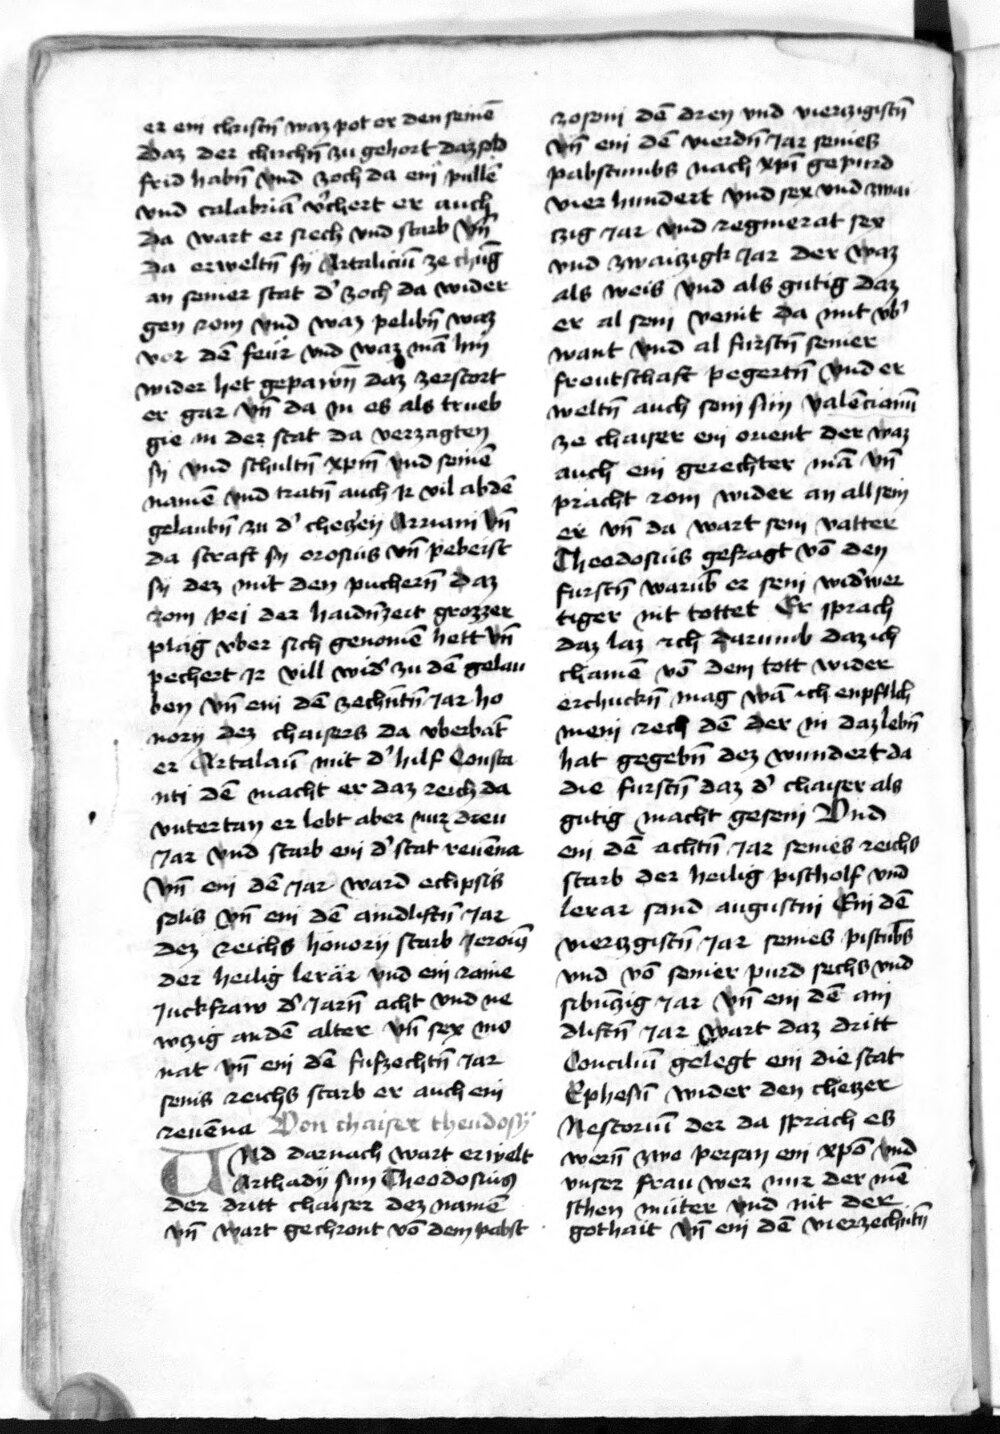 er ein christn̄ waz pot er den seinē
daz der chirchn̄ zu gehort daz sold
frid habn̄ vnd zoch da ein püllē
vnd calabriā v̓chert er auch
da wart er siech vnd starb vn̄
da erweltn̄ sy Artalicūm ze chūg
an seiner stat d̓ zoch da wider
gen rom vnd waz pelibn̄ waz
vor dē feür vnd waz mā hin
wider het gepawn̄ daz zerstort
er gar vn̄ da in es als trueb
gie in der stat da verzagten
sy vnd schultn̄ xp̄m vnd seinē
namē vnd tratn̄ auch ir vil ab dē
gelaubn̄ zu d̓ chetz̓eij Arriani vn̄
da straft sy orosius vn̄ peweist
sy dez mit den puchern̄ daz
rom pei der haidn̄ zeit grozzer
plag vber sich genomē hett vn̄
pechert ir vill wid̓ zu dē gelau
ben vn̄ ein dē zechn̄tn̄ jar ho
norij dez chaisers da vberbāt
er Artalaū mit d̓ hilf Consta
nti dē macht er daz reich da
vntertan er lebt aber nur dreu
jar vnd starb ein d̓ stat reuēna
vn̄ ein dē jar ward eclipsis
solis vn̄ ein dē aindliftn̄ jar
dez reichs honorij starb jeroīꝰ
der heilig lerär vnd ein raine
juckfraw d̓ jarn̄ acht vnd ne
wczig an dē alter vn̄ sex mo
nat vn̄ ein dē fufzechtn̄ jar
seins reichs starb er auch ein
reuēna Von chaiser theudosÿ
UNd darnach wart erwelt
Arthadij sun Theodosius
der dritt chaiser dez namē
vn̄ wart gechront vō dem pabst
zosoni dē drey vnd vierczigistn̄
vn̄ ein dē vierdn̄ jar seines
pabstumbs nach xp̄i gepurd
vier hundert vnd sex vnd zwai
czig jar vnd regnierat sex
vnd zwaiczigk jar der waz
als weis vnd als gütig daz
er al sein veint da mit vb̓
want vnd al fürstn̄ seiner
freutschaft pegertn̄ vnd er
weltn̄ auch sein sun valēcianū
ze chaiser ein orient der waz
auch ein gerechter mā vn̄
pracht rom wider an all sein
er vn̄ da wart sein vatter
Theodosius gefragt vō den
fürstn̄ warūb er sein wid̓wer
tiger nit tottet Er sprach
daz laz ich darumb daz ich
chainē vō dem tott wider
erchuckn̄ mag wā ich enpfilch
mein rech dē der in daz lebn̄
hat gegebn̄ dez wundert da
die fürstn̄ daz d̓ chaiser als
gütig macht gesein Vnd
ein dē achtn̄ jar seines reichs
starb der heilig pischolf vnd
lerar sand augustin Ein dē
vierczgistn̄ jar seines pistūbs
vnd vō seiner purd sechs vnd
sibn̄zig jar vn̄ ein dē ain
dliftn̄ jar wart daz dritt
Conciliū gelegt ein die stat
Ephesū wider den chetzer
Nestoriū der da sprach es
wern̄ zwo person ein xp̄o vnd
vnser frau wer nur der mē
schen müter vnd nit der
gothait vn̄ ein dē vierzechn̄tn̄